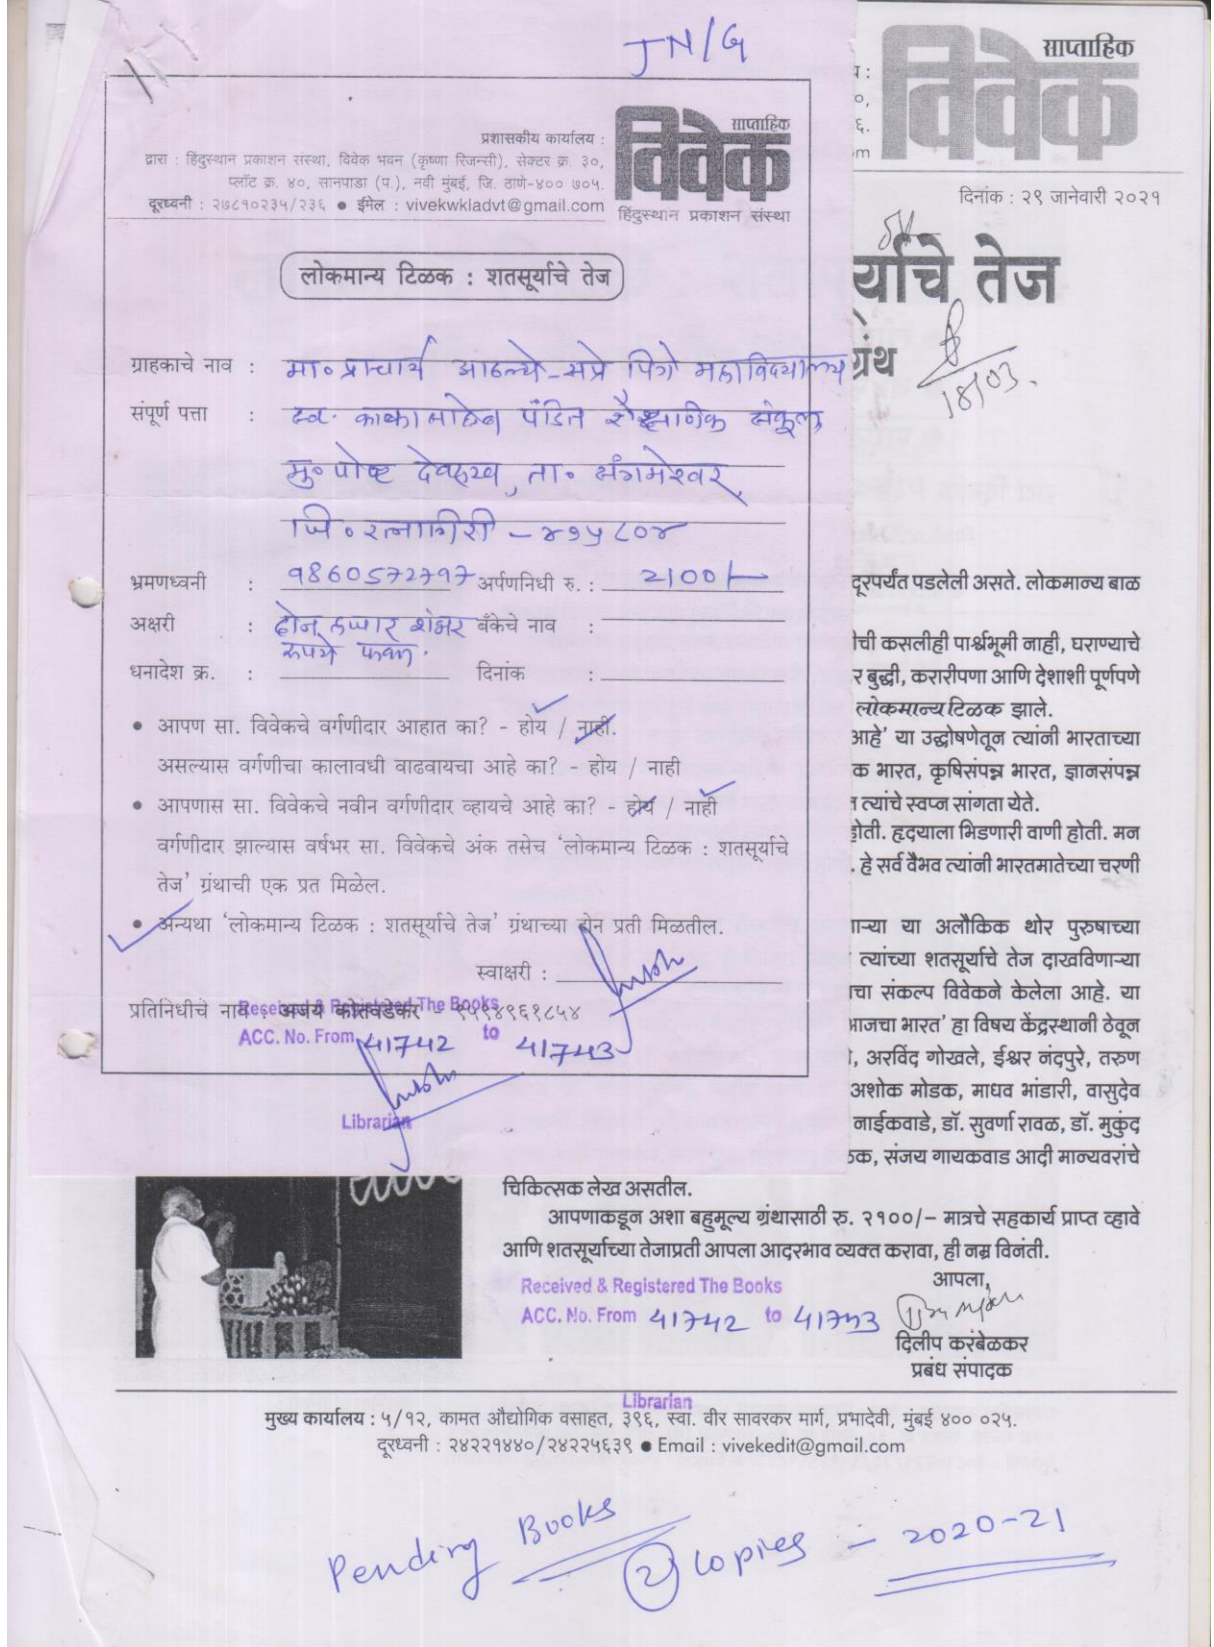 JN/G
साप्ताहिक
विवेक
हिंदुस्थान प्रकाशन संस्था
प्रशासकीय कार्यालय :
द्वारा : हिंदुस्थान प्रकाशन संस्था, विवेक भवन (कृष्णा रिजन्सी), सेक्टर क्र. ३०,
प्लॉट क्र. ४०, सानपाडा (प.), नवी मुंबई, जि. ठाणे-४०० ७०५.
दूरध्वनी : २७८१०२३५/२३६ ● ईमेल : vivekwkladvt@gmail.com
लोकमान्य टिळक : शतसूर्याचे तेज
ग्राहकाचे नाव : मा॰ प्राचार्य आठल्ये-सप्रे पित्रे महाविद्यालय
संपूर्ण पत्ता : स्व. काकासाहेब पंडित शैक्षणिक संकुल,
मु॰ पोष्ट देवरुख, ता॰ संगमेश्वर,
जि॰ रत्नागिरी - ४१५८०४
भ्रमणध्वनी : 9860572797 अर्पणनिधी रु. : 2100/-
अक्षरी : दोन हजार शंभर बँकेचे नाव :
रुपये फक्त.
धनादेश क्र. : दिनांक :
• आपण सा. विवेकचे वर्गणीदार आहात का? - होय / नाही.
असल्यास वर्गणीचा कालावधी वाढवायचा आहे का? - होय / नाही
• आपणास सा. विवेकचे नवीन वर्गणीदार व्हायचे आहे का? - होय / नाही
वर्गणीदार झाल्यास वर्षभर सा. विवेकचे अंक तसेच 'लोकमान्य टिळक : शतसूर्याचे
तेज' ग्रंथाची एक प्रत मिळेल.
• अन्यथा 'लोकमान्य टिळक : शतसूर्याचे तेज' ग्रंथाच्या दोन प्रती मिळतील.
स्वाक्षरी :
प्रतिनिधीचे नाव : अजय कोतवडेकर - ९५९४९६१८५४
Received & Registered The Books
ACC. No. From 41742 to 41743
Librarian
साप्ताहिक
विवेक
दिनांक : २९ जानेवारी २०२१
र्याचे तेज
ग्रंथ
18/03.
दूरपर्यंत पडलेली असते. लोकमान्य बाळ
ची कसलीही पार्श्वभूमी नाही, घराण्याचे
र बुद्धी, करारीपणा आणि देशाशी पूर्णपणे
लोकमान्य टिळक झाले.
आहे' या उद्घोषणेतून त्यांनी भारताच्या
क भारत, कृषिसंपन्न भारत, ज्ञानसंपन्न
त्यांचे स्वप्न सांगता येते.
होती. हृदयाला भिडणारी वाणी होती. मन
. हे सर्व वैभव त्यांनी भारतमातेच्या चरणी
णाऱ्या या अलौकिक थोर पुरुषाच्या
त्यांच्या शतसूर्याचे तेज दाखविणाऱ्या
चा संकल्प विवेकने केलेला आहे. या
आजचा भारत' हा विषय केंद्रस्थानी ठेवून
, अरविंद गोखले, ईश्वर नंदपुरे, तरुण
अशोक मोडक, माधव भांडारी, वासुदेव
नाईकवाडे, डॉ. सुवर्णा रावळ, डॉ. मुकुंद
ठक, संजय गायकवाड आदी मान्यवरांचे
चिकित्सक लेख असतील.
आपणाकडून अशा बहुमूल्य ग्रंथासाठी रु. २१००/- मात्रचे सहकार्य प्राप्त व्हावे
आणि शतसूर्याच्या तेजाप्रती आपला आदरभाव व्यक्त करावा, ही नम्र विनंती.
आपला,
Received & Registered The Books
ACC. No. From 41742 to 41743
दिलीप करंबेळकर
प्रबंध संपादक
Librarian
मुख्य कार्यालय : ५/१२, कामत औद्योगिक वसाहत, ३९६, स्वा. वीर सावरकर मार्ग, प्रभादेवी, मुंबई ४०० ०२५.
दूरध्वनी : २४२२१४४०/२४२२५६३९ ● Email : vivekedit@gmail.com
Pending Books
2 copies - 2020-21